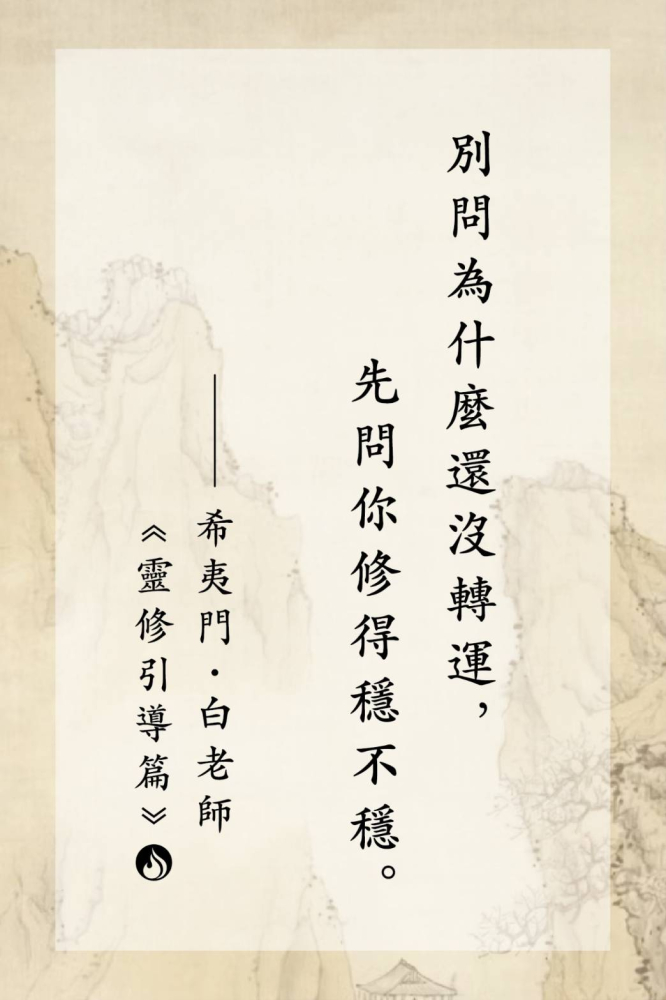 別問為什麼還沒轉運，
先問你修得穩不穩。
——希夷門·白老師
《靈修引導篇》